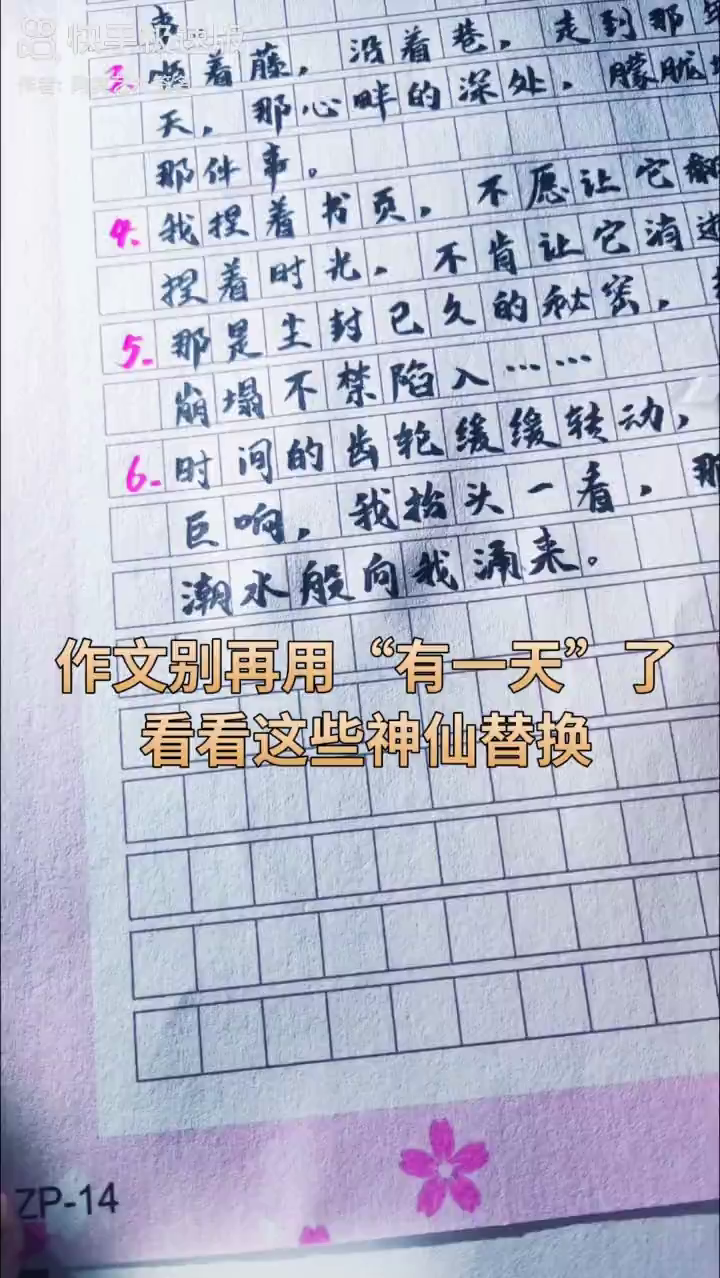 快手极速版
作者:
3. 着藤，沿着巷，走到那
天，那心畔的深处，朦胧
那件事。
4. 我捏着书页，不愿让它翻
捏着时光，不肯让它消逝
5. 那是尘封已久的秘密，
崩塌不禁陷入……
6. 时间的齿轮缓缓转动，
巨响，我抬头一看，那
潮水般向我涌来。
作文别再用“有一天”了
看看这些神仙替换
ZP-14